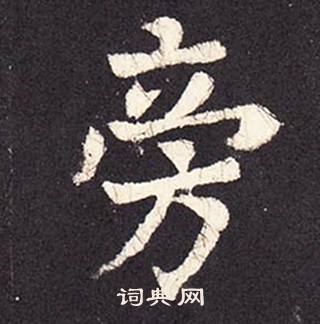 旁
词典网